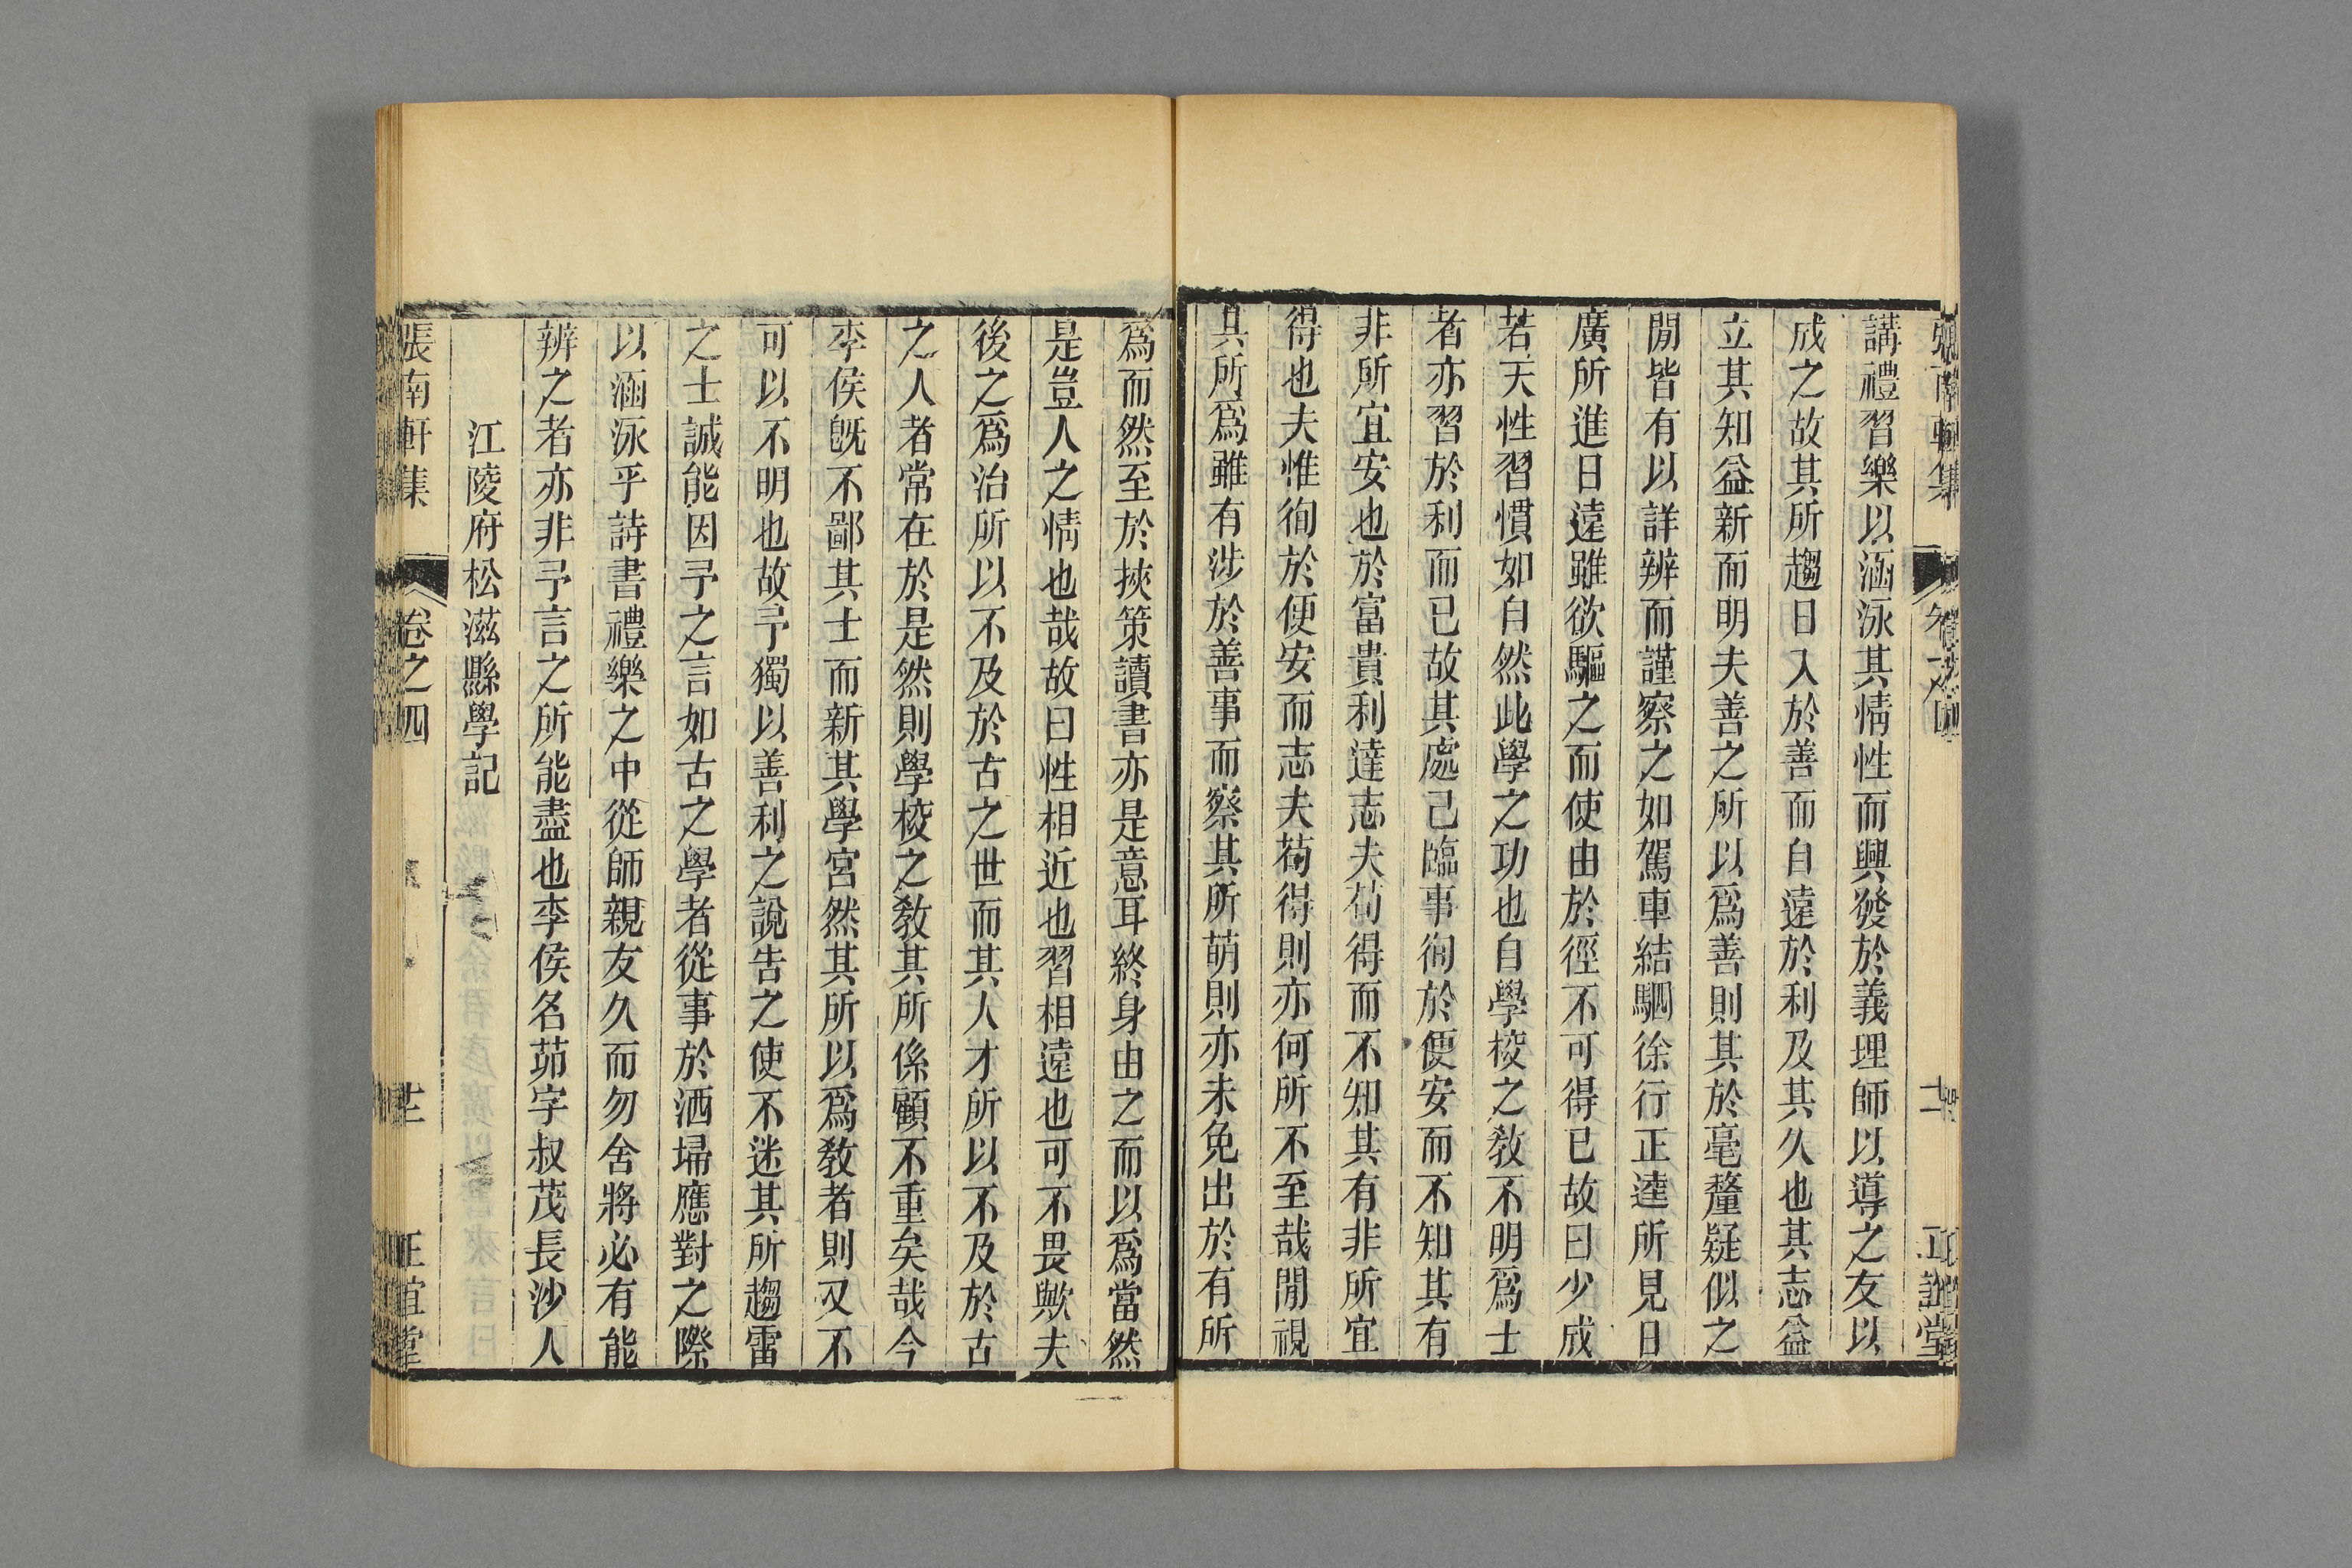 講禮習樂以涵泳其情性而興發於義理師以導之友以
成之故其所趨日入於善而自遠於利及其久也其志益
立其知益新而明夫善之所以爲善則其於毫釐疑似之
閒皆有以詳辨而謹察之如駕車結駟徐行正逵所見日
廣所進日遠雖欲驅之而使由於徑不可得已故曰少成
若天性習慣如自然此學之功也自學校之敎不明爲士
者亦習於利而已故其處己臨事徇於便安而不知其有
非所宜安也於富貴利達志夫苟得而不知其有非所宜
得也夫惟徇於便安而志夫苟得則亦何所不至哉閒視
其所爲雖有涉於善事而察其所萌則亦未免出於有所
爲而然至於挾策讀書亦是意耳終身由之而以爲當然
是豈人之情也哉故曰性相近也習相遠也可不畏歟夫
後之爲治所以不及於古之世而其人才所以不及於古
之人者常在於是然則學校之敎其所係顧不重矣哉今
李侯旣不鄙其士而新其學宮然其所以爲敎者則又不
可以不明也故予獨以善利之說告之使不迷其所趨雷
之士誠能因予之言如古之學者從事於洒埽應對之際
以涵泳乎詩書禮樂之中從師親友久而勿舍將必有能
辨之者亦非予言之所能盡也李侯名茆字叔茂長沙人
江陵府松滋縣學記
張南軒集 卷之四 正誼堂